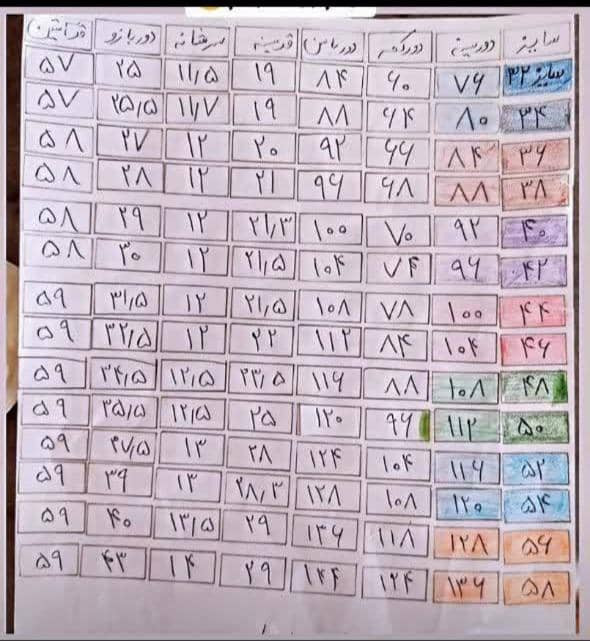 سایز دورسینه دورکمر دورباسن قدسینه سرشانه دوربازو قدآستین
سایز ۳۲ ۷۶ ۶۰ ۸۴ ۱۹ ۱۱/۵ ۲۵ ۵۷
۳۴ ۸۰ ۶۴ ۸۸ ۱۹ ۱۱/۷ ۲۵/۵ ۵۷
۳۶ ۸۴ ۶۶ ۹۲ ۲۰ ۱۲ ۲۷ ۵۸
۳۸ ۸۸ ۶۸ ۹۶ ۲۱ ۱۲ ۲۸ ۵۸
۴۰ ۹۲ ۷۰ ۱۰۰ ۲۱/۳ ۱۲ ۲۹ ۵۸
۴۲ ۹۶ ۷۴ ۱۰۴ ۲۱/۵ ۱۲ ۳۰ ۵۸
۴۴ ۱۰۰ ۷۸ ۱۰۸ ۲۱/۵ ۱۲ ۳۱/۵ ۵۹
۴۶ ۱۰۴ ۸۴ ۱۱۲ ۲۲ ۱۲ ۳۲/۵ ۵۹
۴۸ ۱۰۸ ۸۸ ۱۱۶ ۲۳/۵ ۱۲/۵ ۳۴/۵ ۵۹
۵۰ ۱۱۲ ۹۶ ۱۲۰ ۲۵ ۱۲/۵ ۳۵/۵ ۵۹
۵۲ ۱۱۶ ۱۰۴ ۱۲۴ ۲۸ ۱۳ ۳۷/۵ ۵۹
۵۴ ۱۲۰ ۱۰۸ ۱۲۸ ۲۸/۳ ۱۳ ۳۹ ۵۹
۵۶ ۱۲۸ ۱۱۸ ۱۳۶ ۲۹ ۱۳/۵ ۴۰ ۵۹
۵۸ ۱۳۶ ۱۲۴ ۱۴۴ ۲۹ ۱۴ ۴۳ ۵۹